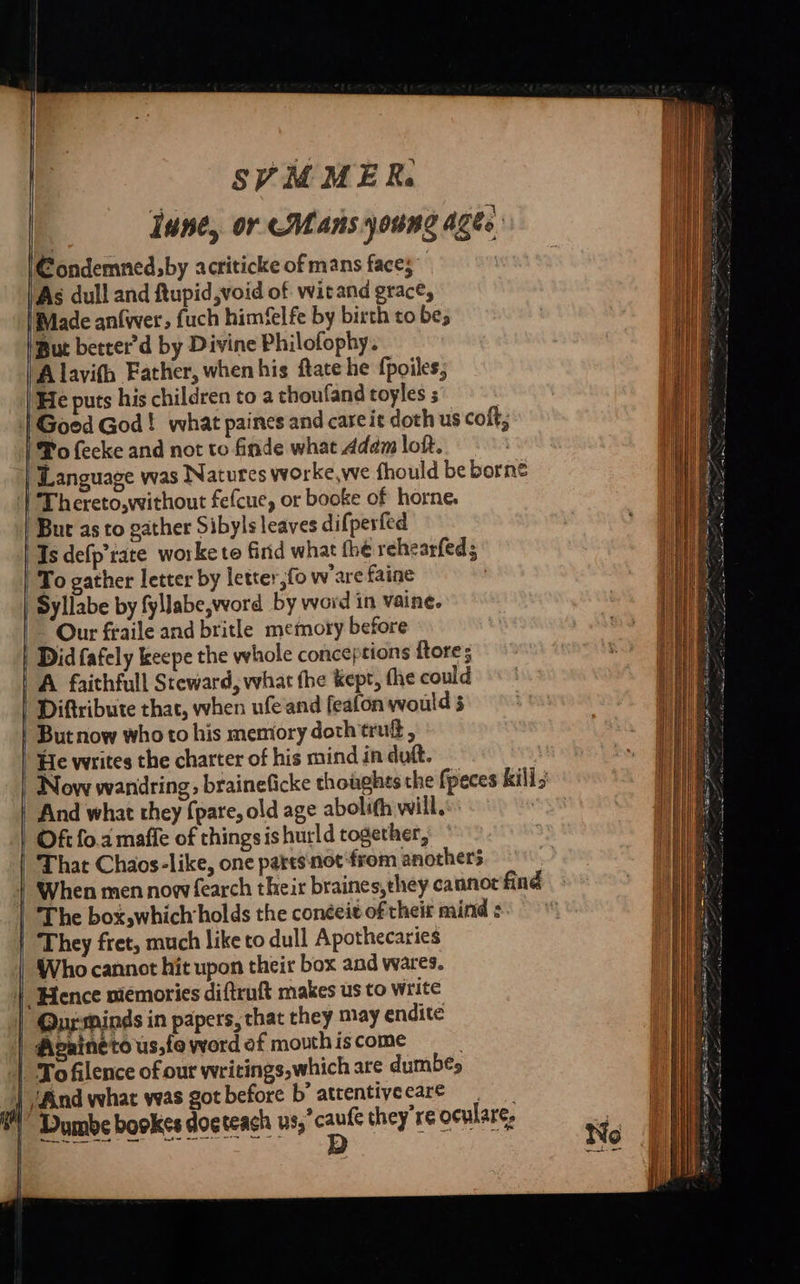 SVMMER.
Iune, or Mans young age.
Condemned, by a criticke of mans face;
As dull and ſtupid, void of wit and grace,
Made anſwer, ſuch himſelfe by birth to be,
But better'd by Divine Philoſophy.
A laviſh Father, when his ſtate he ſpoiles,
He puts his children to a thouſand toyles;
Good God! what paines and care it doth us coſt,
To ſeeke and not to finde what Adam loſt.
Language was Natures worke, we ſhould be borne
Thereto, without feſcue, or booke of horne.
But as to gather Sibyls leaves diſperſed
Is deſp'rate worke to find what ſhe rehearſed;
To gather letter by letter, ſo w'are faine
Syllabe by ſyllabe, word by word in vaine.
Our fraile and britle memory before
Did ſafely keepe the whole conceptions ſtore;
A faithfull Steward, what ſhe kept, ſhe could
Diſtribute that, when uſe and ſeaſon would;
But now who to his memory doth truſt,
He writes the charter of his mind in duſt.
Now wandring, braineſicke thoughts the ſpeces kill;
And what they ſpare, old age aboliſh will.
Oft ſo a maſſe of things is hurld together,
That Chaos-like, one parts not from another;
When men now ſearch their braines, they cannot find
The box, which holds the conceit of their mind:
They fret, much like to dull Apothecaries
Who cannot hit upon their box and wares.
Hence memories diſtruſt makes us to write
Our minds in papers, that they may endite
Againe to us, ſo word of mouth is come
To ſilence of our writings, which are dumbe,
And what was got before b' attentive eare
Dumbe bookes doe teach us, 'cauſe they're oculare,
D
No